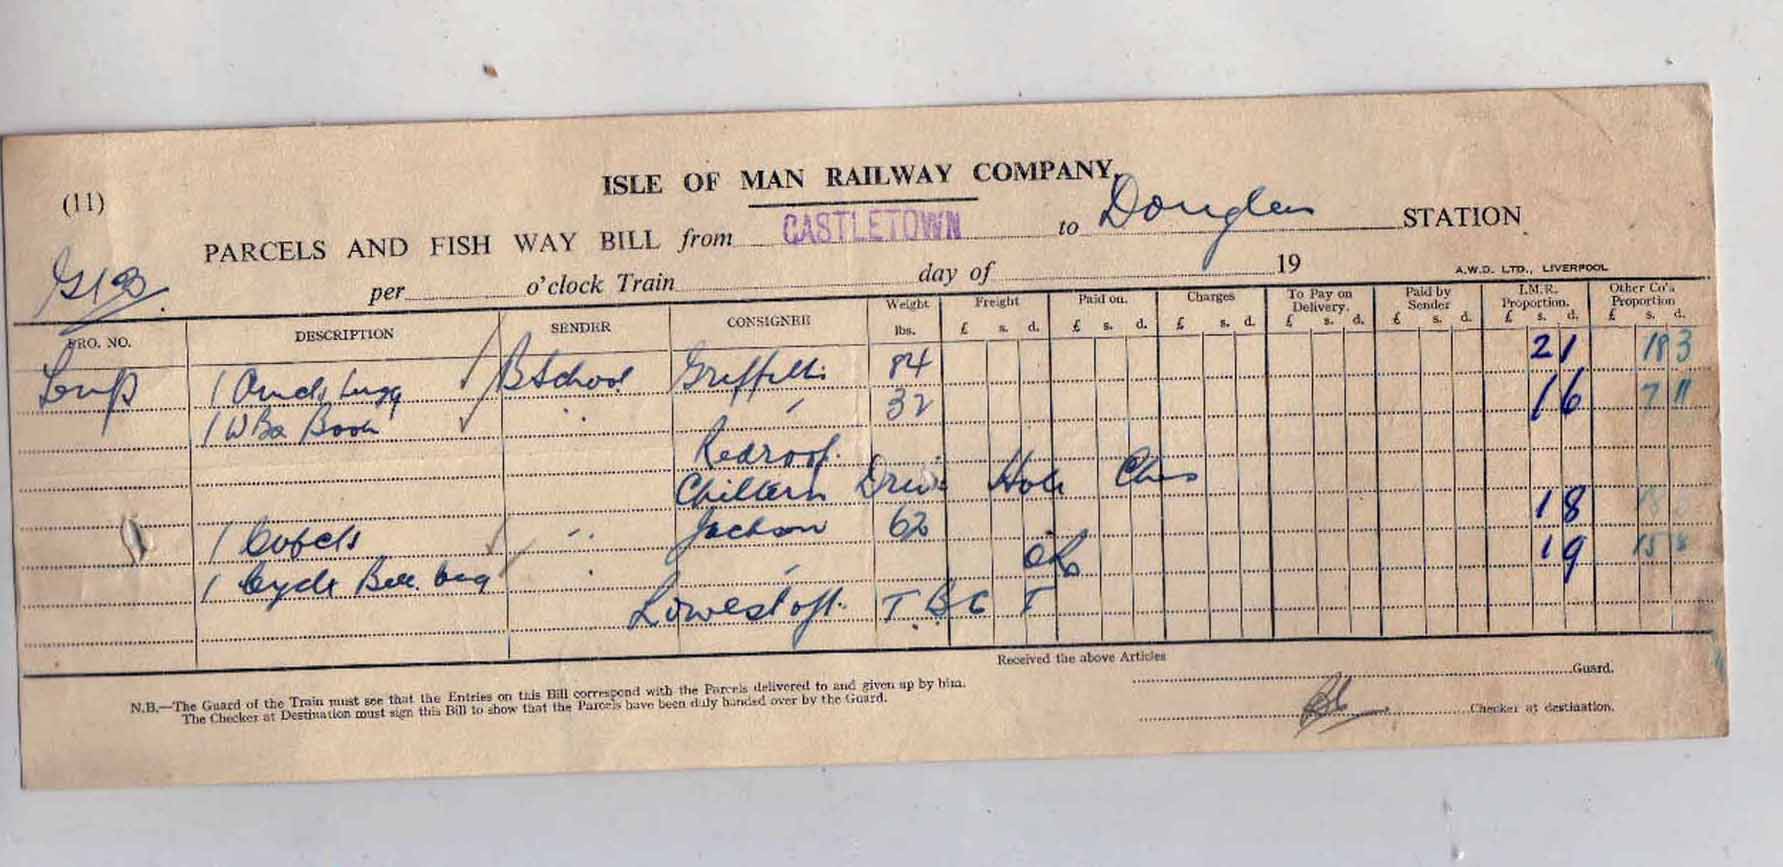 (11)
ISLE OF MAN RAILWAY COMPANY.
PARCELS AND FISH WAY BILL from CASTLETOWN to Douglas STATION
per o'clock Train day of 19
A.W.D. LTD., LIVERPOOL
PRO. NO. DESCRIPTION SENDER CONSIGNEE Weight lbs. Freight £ s. d. Paid on. £ s. d. Charges £ s. d. To Pay on Delivery. £ s. d. Paid by Sender £ s. d. I.M.R. Proportion. £ s. d. Other Co's Proportion £ s. d.
1 lugg B School Griffiths 84 2 1 18 3
1 W Box Book 32 1 6 7 11
Redroof.
Chiltern Drive Hale Ches
1 Jackson 62 1 8
1 Cycle bag 1 9 15 8
Lowestoft.
Received the above Articles
Guard.
N.B.—The Guard of the Train must see that the Entries on this Bill correspond with the Parcels delivered to and given up by him.
The Checker at Destination must sign this Bill to show that the Parcels have been duly handed over by the Guard.
Checker at destination.